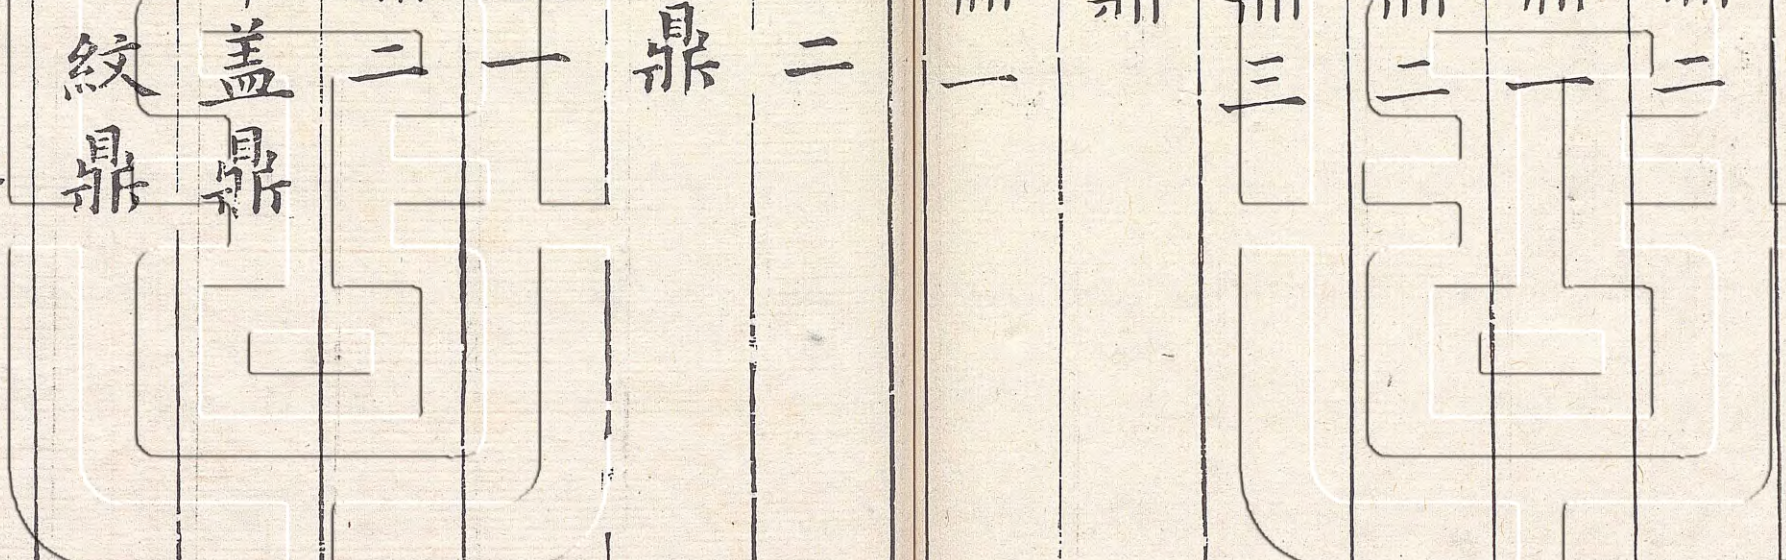 二
一
二
三
一
二
鼎
一
二
盖鼎
紋鼎